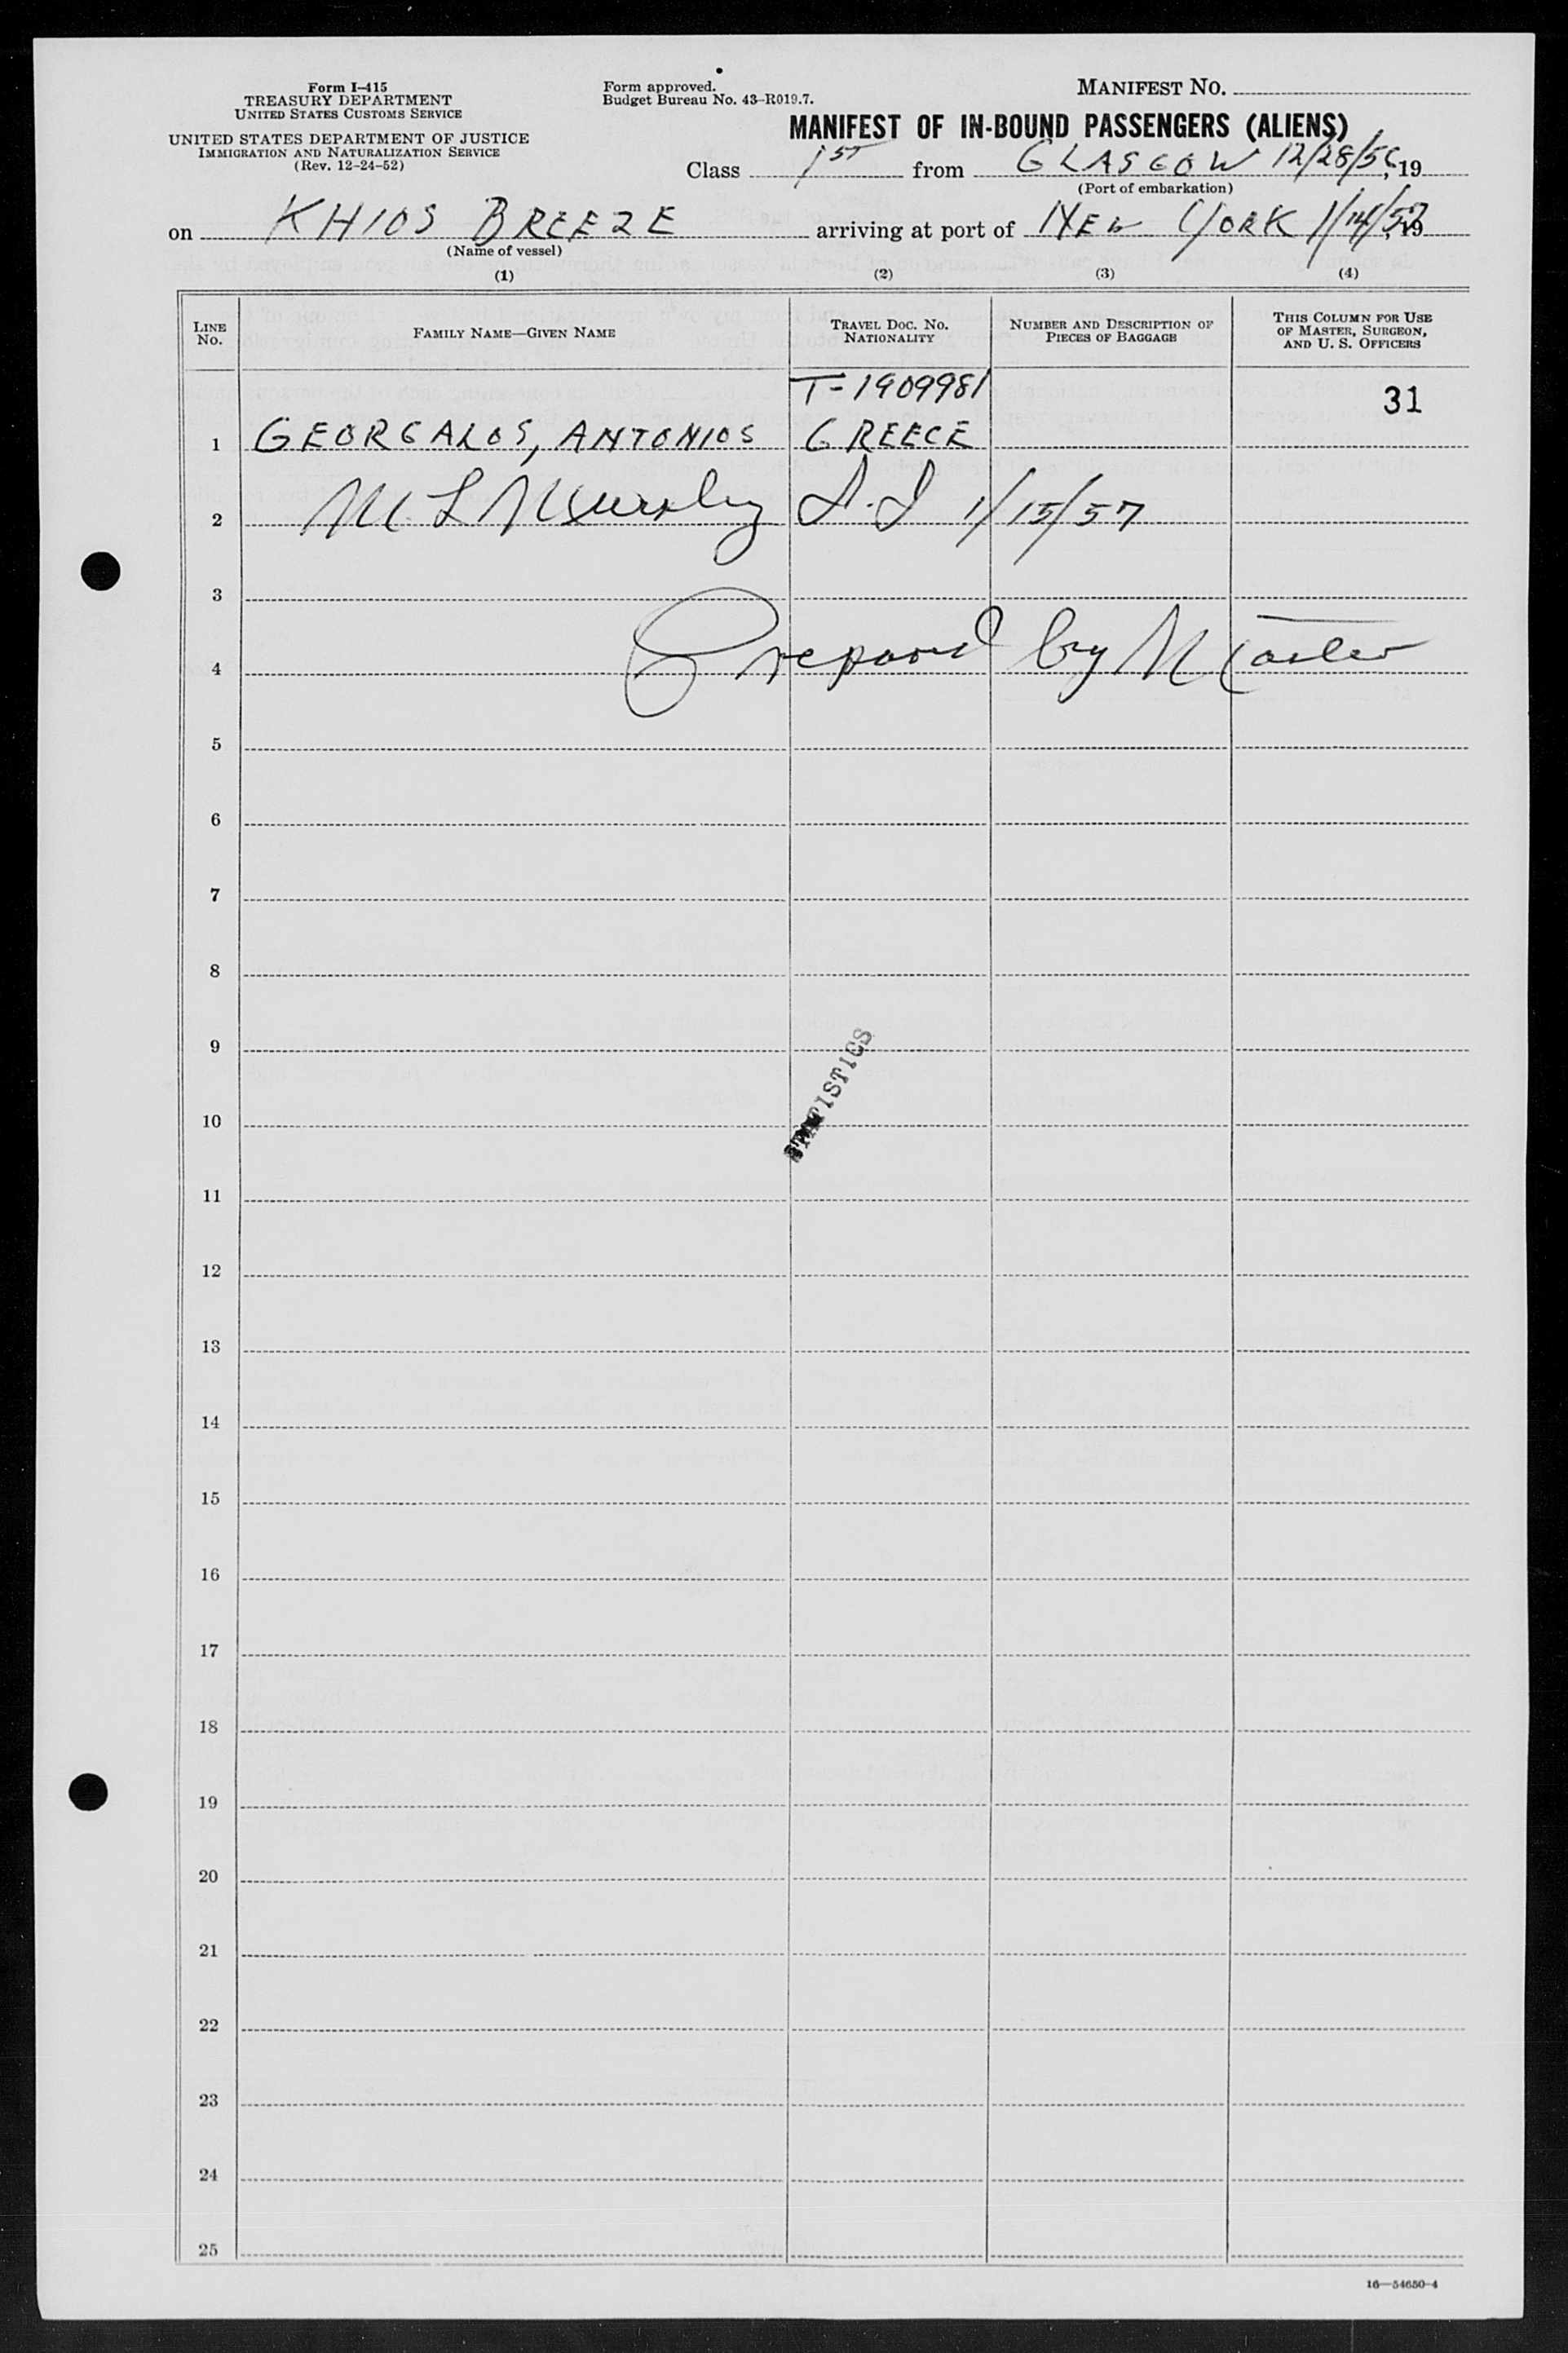 Form I-415
TREASURY DEPARTMENT
UNITED STATES CUSTOMS SERVICE
UNITED STATES DEPARTMENT OF JUSTICE
IMMIGRATION AND NATURALIZATION SERVICE
(Rev. 12-24-52)
Form approved.
Budget Bureau No. 43-R019.7.
MANIFEST NO.
MANIFEST OF IN-BOUND PASSENGERS (ALIENS)
Class 1ST from GLASGOW 12/28/56, 19
(Port of embarkation)
on KHIOS BREEZE arriving at port of NEW YORK 1/14/57, 19
(Name of vessel)
(1) (2) (3) (4)
LINE NO.
FAMILY NAME—GIVEN NAME
TRAVEL DOC. NO.
NATIONALITY
NUMBER AND DESCRIPTION OF
PIECES OF BAGGAGE
THIS COLUMN FOR USE
OF MASTER, SURGEON,
AND U. S. OFFICERS
T-1909981 31
1 GEORGALOS, ANTONIOS GREECE
2 M L 1/15/57
3
4 Prepared by Master
5
6
7
8
9
STATISTICS
10
11
12
13
14
15
16
17
18
19
20
21
22
23
24
25
16—54650-4